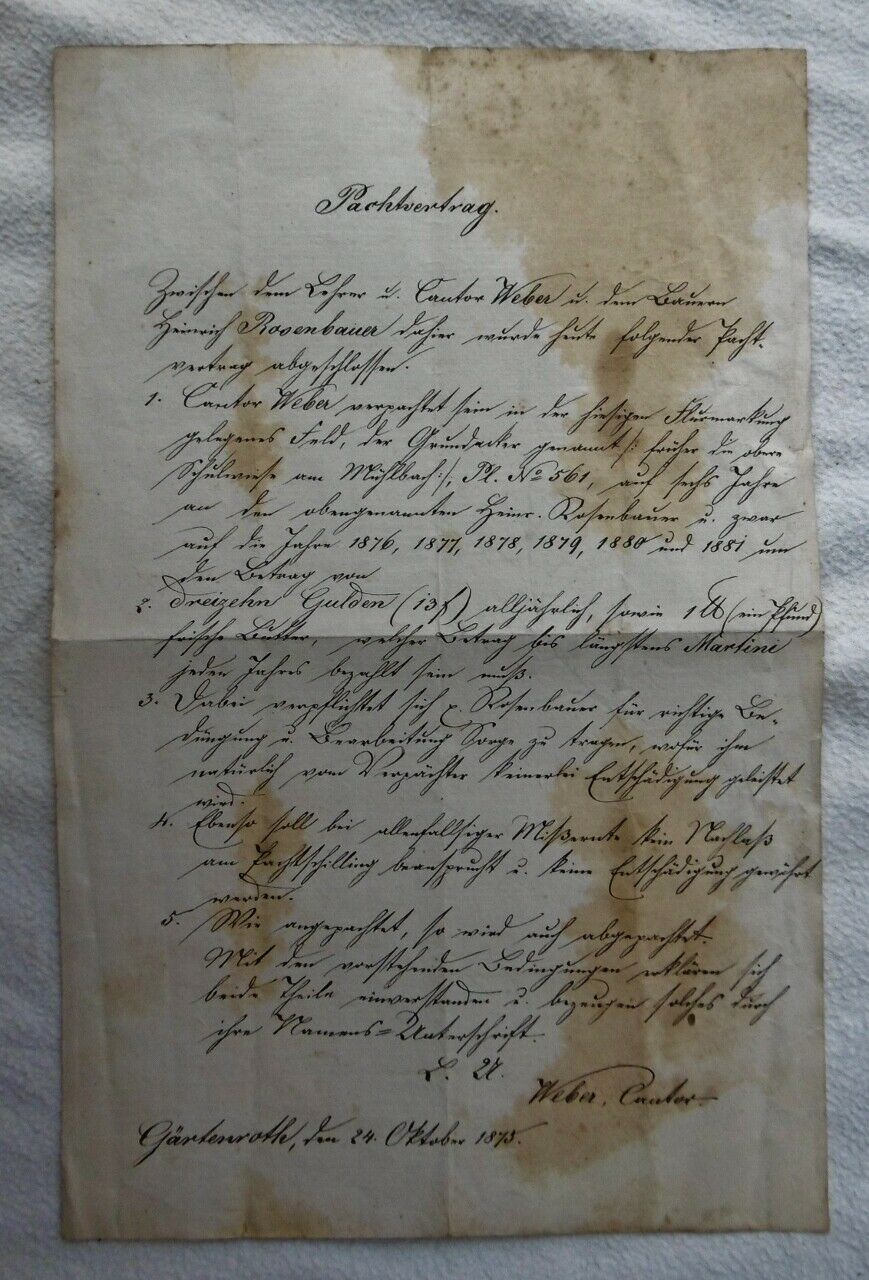 Pachtvertrag.
Zwischen dem Lehrer u. Cantor Weber u. dem Bauern
Heinrich Rosenbauer dahier wurde heute folgender Pacht-
vertrag abgeschlossen.
1. Cantor Weber verpachtet sein in der hiesigen Flurmarkung
gelegenes Feld, der Grundacker genannt /: früher die obere
Schulwiese am Mühlbach :/, Pl. No 561, auf sechs Jahre
an den obengenannten Heinr. Rosenbauer u. zwar
auf die Jahre 1876, 1877, 1878, 1879, 1880 und 1881 um
den Betrag von
2. dreizehn Gulden (13 f) alljährlich, sowie 1 ℔ (ein Pfund)
frische Butter, welcher Betrag bis längstens Martini
jeden Jahres bezahlt sein muß.
3. Dabei verpflichtet sich p. Rosenbauer für richtige Be-
düngung u. Bearbeitung Sorge zu tragen, wofür ihm
natürlich vom Verpächter keinerlei Entschädigung geleistet
wird.
4. Ebenso soll bei allenfallsiger Mißernte kein Nachlaß
am Pachtschilling beansprucht u. keine Entschädigung gewährt
werden.
5. Wie angepachtet, so wird auch abgepachtet.
Mit den vorstehenden Bedingungen erklären sich
beide Theile einverstanden u. bezeugen solches durch
ihre Namens-Unterschrift.
L. U.
Weber, Cantor.
Gärtenroth, den 24. Oktober 1875.